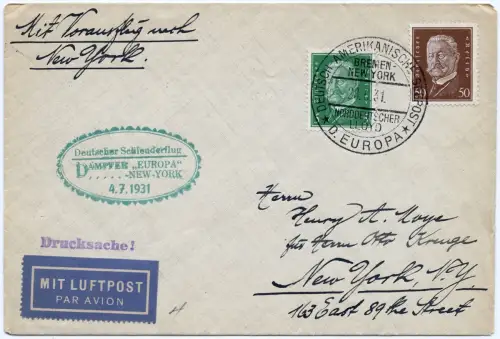 Mit Vorausflug nach
New York.
DEUTSCH-AMERIKANISCHE SEEPOST
BREMEN-
NEW-YORK
31.
NORDDEUTSCHER
LLOYD
★ D. EUROPA ★
50 50
Deutscher Schleuderflug
DAMPFER „EUROPA"
.....-NEW-YORK
4.7.1931
Drucksache!
MIT LUFTPOST
PAR AVION
Herrn
Henry A. Moye
für Herrn Otto Kruge
New York, N.Y.
163 East 89 the Street